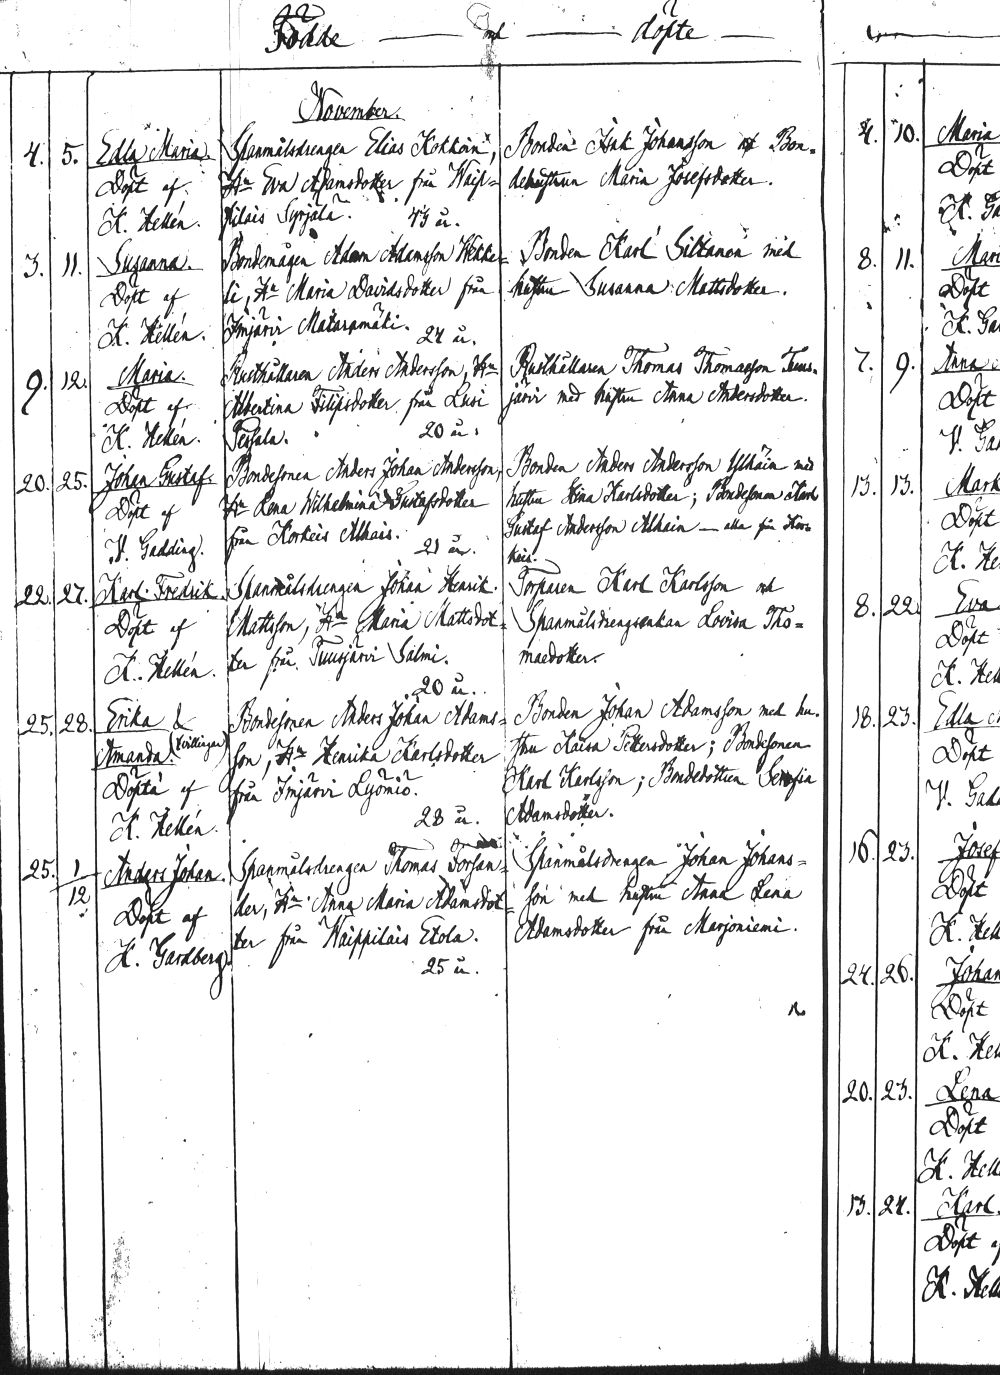 Födde och döpte
November.
4. 5. Edla Maria. Spanmålsdrengen Elias Kokkoin, Bonden Isak Johansson och Bon-
Döpt af Hu Eva Adamsdotter från Waip- dehustrun Maria Josefsdotter.
K. Hellén. pilais Syrjälä. 43 år.
3. 11. Suzanna. Bondemågen Adam Adamsson Heikke- Bonden Karl Siltanen med
Döpt af li, Hu Maria Davidsdotter från hustru Susanna Mattsdotter.
K. Hellén. Imjärvi Mataramäki. 24 år.
9. 12. Maria. Rusthållaren Anders Andersson, Hu Rusthållaren Thomas Thomasson Tuus-
Döpt af Albertina Filipsdotter från Lusi järvi med hustru Anna Andersdotter.
K. Hellén. 20 år.
20. 25. Johan Gustaf. Bondesonen Anders Johan Andersson, Bonden Anders Andersson Ylhäin med
Döpt af Hu Lena Wilhelmina Gustafsdotter hustru Stina Karlsdotter; Bondesonen Karl
V. Gadding. från Korkeis Alhais. 21 år. Gustaf Andersson Alhain — alla från Kor-
keis.
22. 27. Karl Fredrik. Spanmålsdrengen Johan Henrik Torparen Karl Karlsson och
Döpt af Mattsson, Hu Maria Mattsdot- Spanmålsdrengsenkan Lovisa Tho-
K. Hellén. ter från Tuusjärvi Salmi. masdotter.
20 år.
25. 28. Erika & Bondesonen Anders Johan Adams- Bonden Johan Adamsson med hu-
Amanda. (tvillingar) son, Hu Henrika Karlsdotter stru Kaisa Pettersdotter; Bondesonen
Döpta af från Imjärvi Lyömiö. Karl Karlsson; Bondedottren Serafia
K. Hellén. 28 år. Adamsdotter.
25. 1/12 Anders Johan. Spanmålsdrengen Thomas Torsan- Spanmålsdrengen Johan Johans-
Döpt af der, Hu Anna Maria Adamsdot- son med hustru Anna Lena
K. Gardberg. ter från Waippilais Etola. Adamsdotter från Marjoniemi.
25 år.
4. 10. Maria
Döpt
K. Ga
8. 11. Mari
Döpt
K. Ga
7. 9. Anna
Döpt
V. Gad
13. 13. Mark
Döpt
K. He
8. 22. Eva
Döpt
K. Hel
18. 23. Edla
Döpt
V. Gad
16. 23. Josef
Döpt
K. Hel
24. 26. Johan
Döpt
K. Hel
20. 23. Lena
Döpt
K. Hell
13. 24. Karl
Döpt a
K. Hell